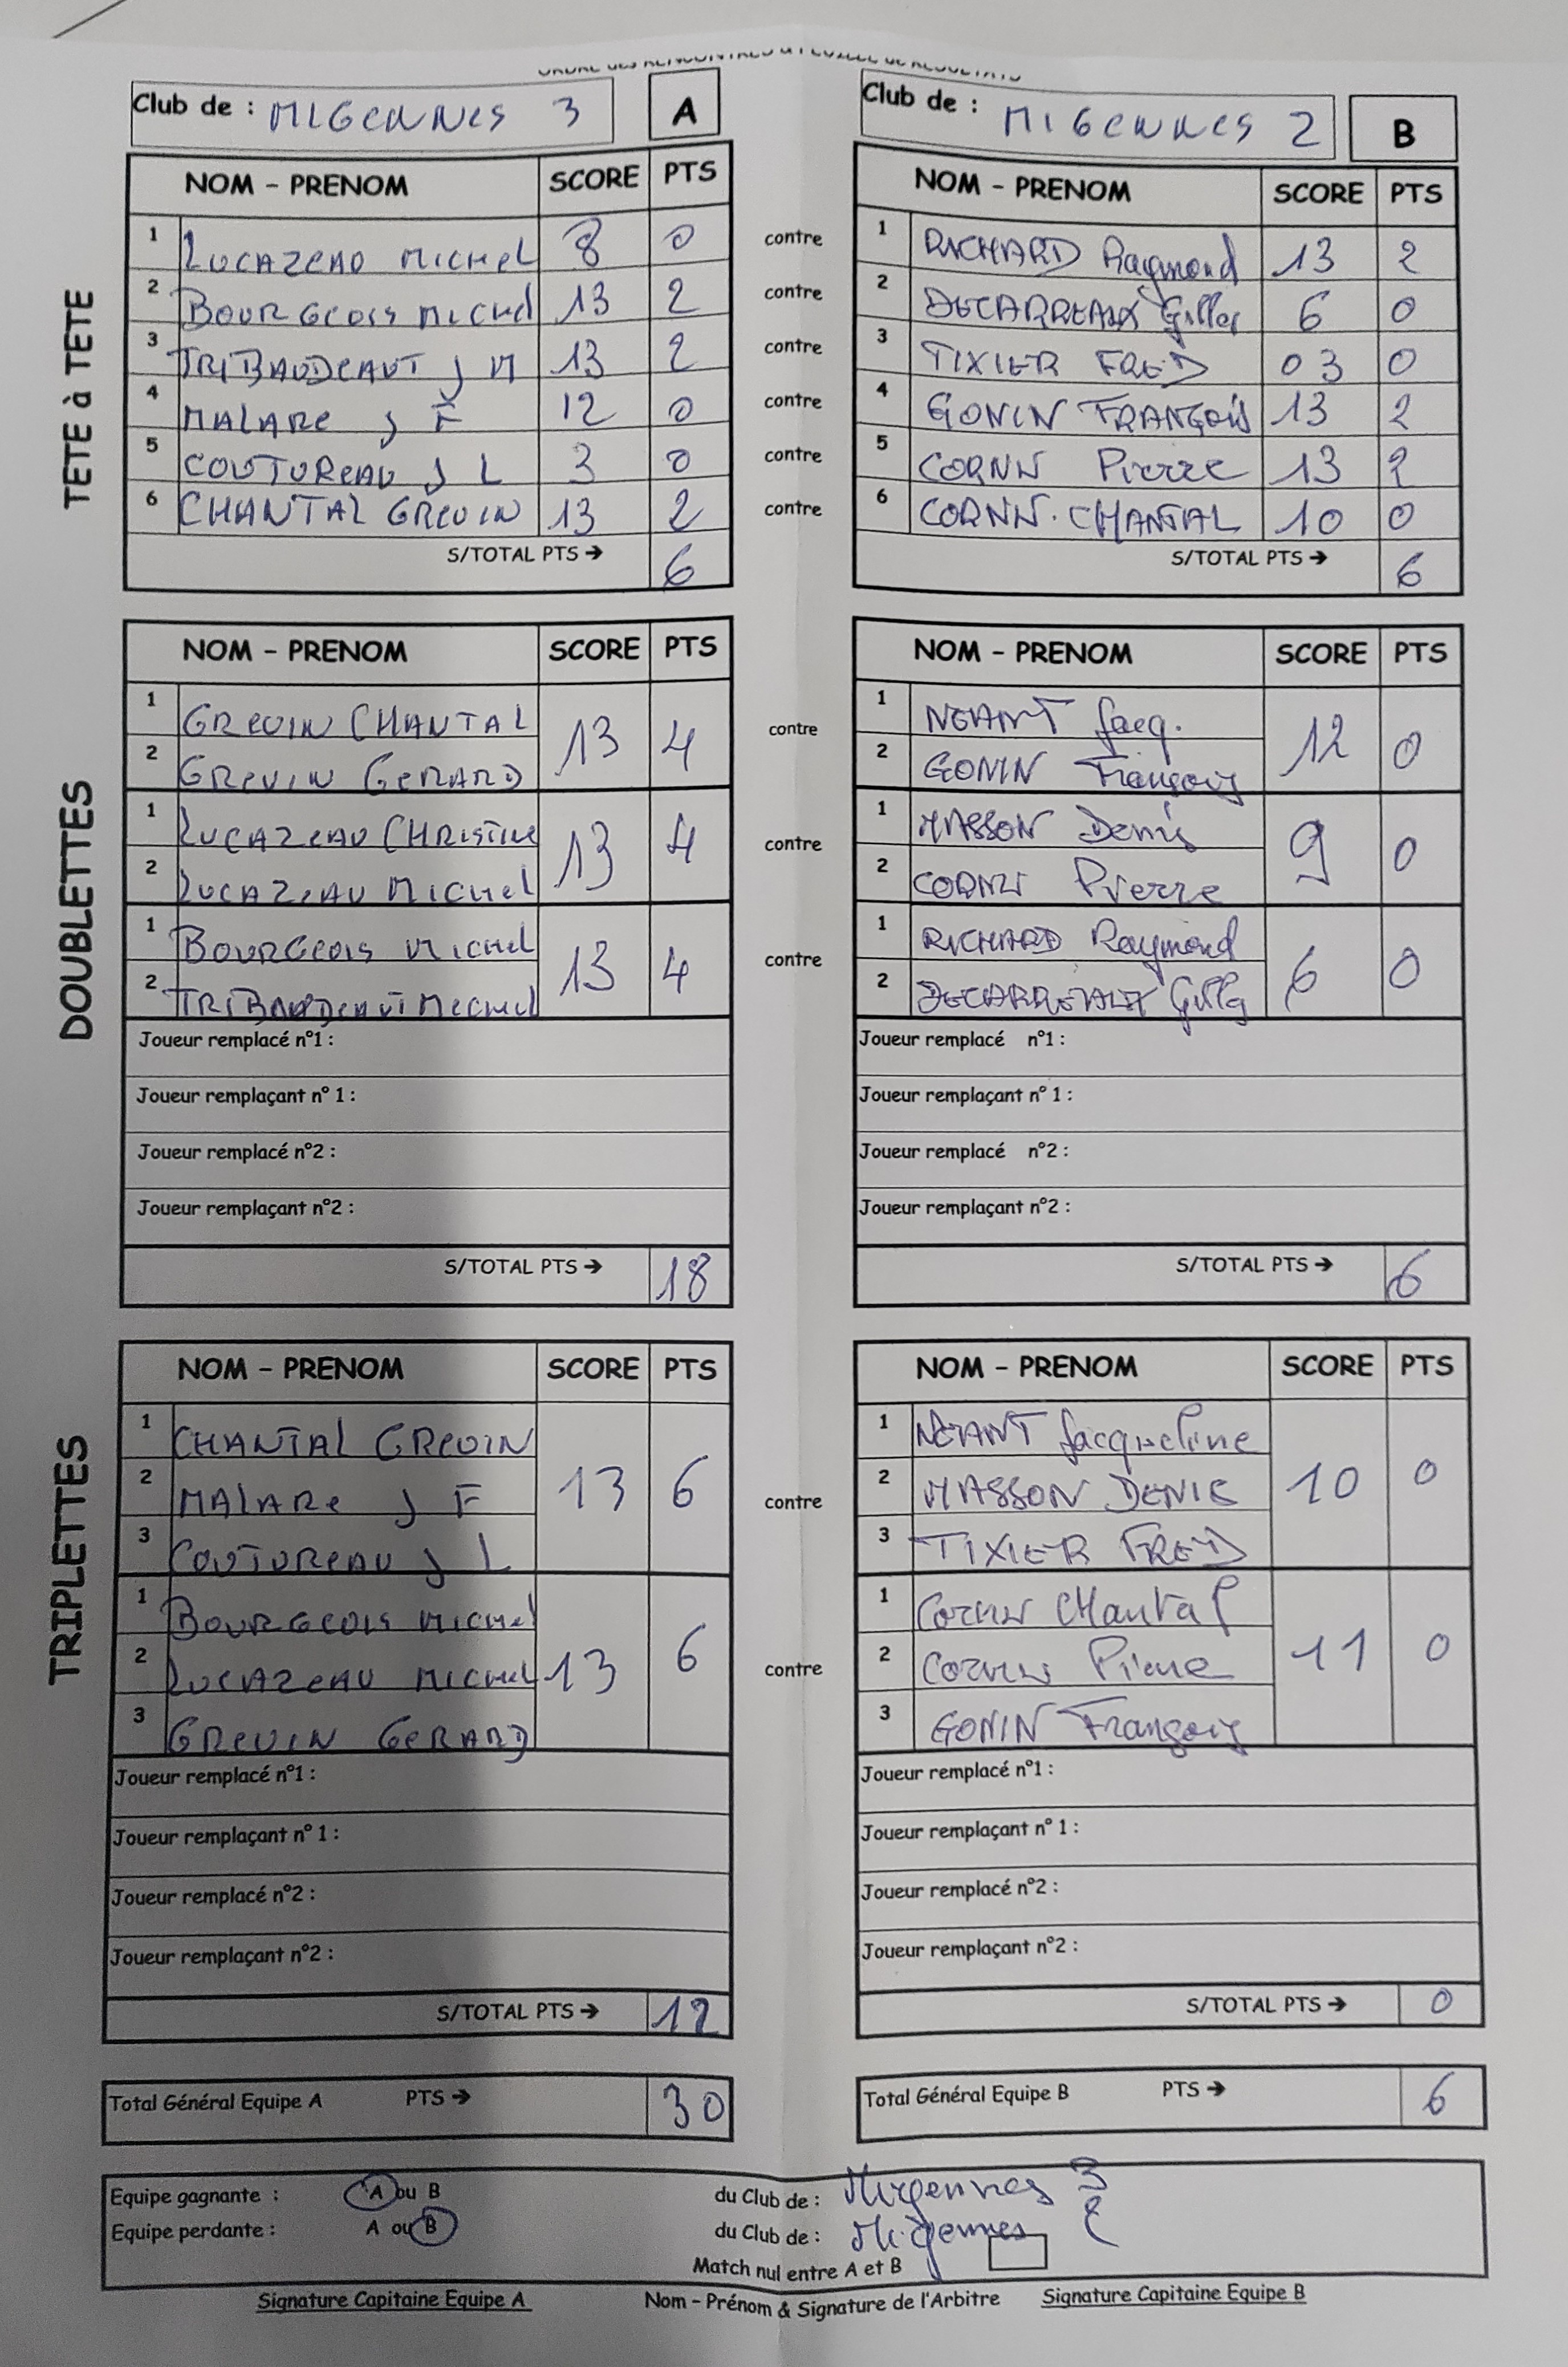 ORDRE des RENCONTRES & FEUILLE de RESULTATS
Club de : MIGENNES 3 A
Club de : MIGENNES 2 B
TETE à TETE
NOM - PRENOM SCORE PTS NOM - PRENOM SCORE PTS
1 LUCAZEAU MICHEL 8 0 contre 1 RICHARD Raymond 13 2
2 BOURGEOIS MICHEL 13 2 contre 2 DECARREAUX Gilles 6 0
3 TRIBAUDEAUT J M 13 2 contre 3 TIXIER FRED 03 0
4 MALARE J F 12 0 contre 4 GONIN FRANÇOIS 13 2
5 COUTUREAU J L 3 0 contre 5 CORNU Pierre 13 2
6 CHANTAL GREVIN 13 2 contre 6 CORNU. CHANTAL 10 0
S/TOTAL PTS → 6 S/TOTAL PTS → 6
DOUBLETTES
NOM - PRENOM SCORE PTS NOM - PRENOM SCORE PTS
1 GREVIN CHANTAL 13 4 contre 1 NEANT Jacq. 12 0
2 GREVIN GERARD 2 GONIN François
1 LUCAZEAU CHRISTINE 13 4 contre 1 MASSON Denis 9 0
2 LUCAZEAU MICHEL 2 CORNU Pierre
1 BOURGEOIS MICHEL 13 4 contre 1 RICHARD Raymond 6 0
2 TRIBAUDEAUT MICHEL 2 DECARREAUX Gilles
Joueur remplacé n°1 : Joueur remplacé n°1 :
Joueur remplaçant n° 1 : Joueur remplaçant n° 1 :
Joueur remplacé n°2 : Joueur remplacé n°2 :
Joueur remplaçant n°2 : Joueur remplaçant n°2 :
S/TOTAL PTS → 18 S/TOTAL PTS → 6
TRIPLETTES
NOM - PRENOM SCORE PTS NOM - PRENOM SCORE PTS
1 CHANTAL GREVIN 1 NEANT Jacqueline
2 MALARE J F 13 6 contre 2 MASSON DENIS 10 0
3 COUTUREAU J L 3 TIXIER FRED
1 BOURGEOIS MICHEL 1 CORNU CHANTAL
2 LUCAZEAU MICHEL 13 6 contre 2 CORNU Pierre 11 0
3 GREVIN GERARD 3 GONIN François
Joueur remplacé n°1 : Joueur remplacé n°1 :
Joueur remplaçant n° 1 : Joueur remplaçant n° 1 :
Joueur remplacé n°2 : Joueur remplacé n°2 :
Joueur remplaçant n°2 : Joueur remplaçant n°2 :
S/TOTAL PTS → 12 S/TOTAL PTS → 0
Total Général Equipe A PTS → 30 Total Général Equipe B PTS → 6
Equipe gagnante : A ou B du Club de : Migennes 3
Equipe perdante : A ou B du Club de : Migennes 2
Match nul entre A et B
Signature Capitaine Equipe A Nom - Prénom & Signature de l'Arbitre Signature Capitaine Equipe B